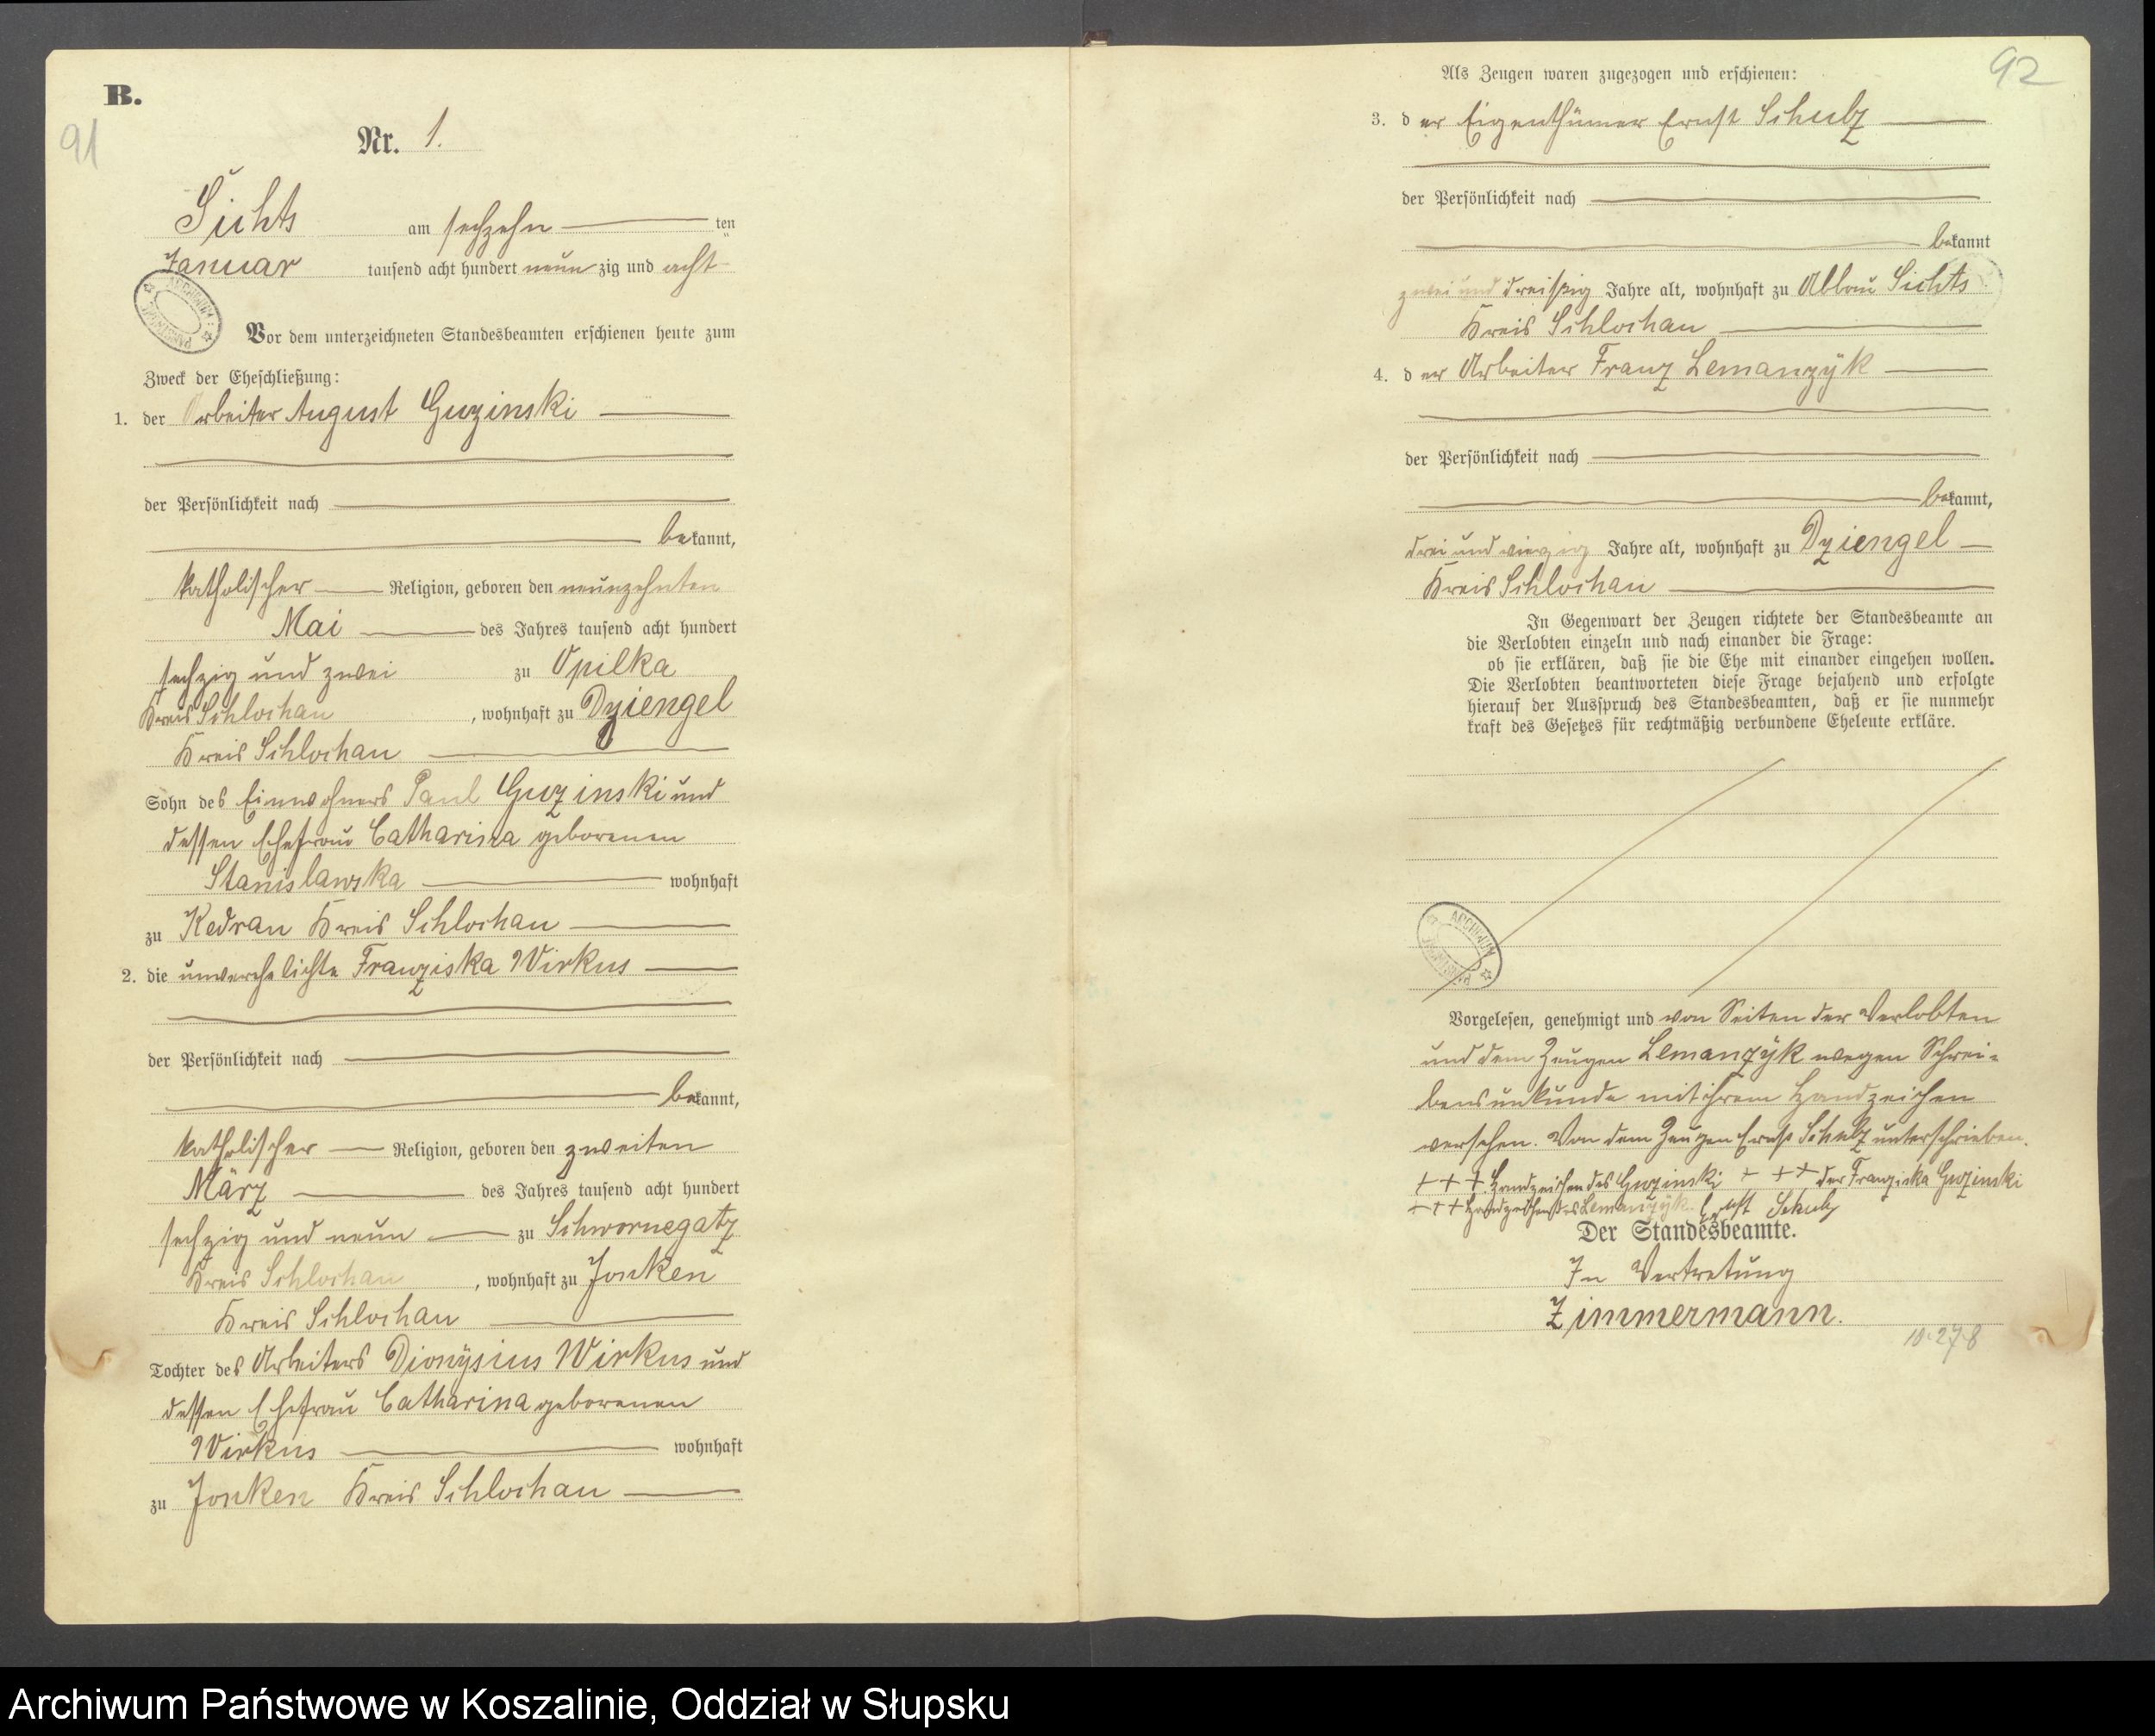 B.
91
Nr. 1.
Sichts am sechzehn ten
Januar tausend acht hundert neun zig und acht
Vor dem unterzeichneten Standesbeamten erschienen heute zum
Zweck der Eheschließung:
1. der Arbeiter August Guzinski
der Persönlichkeit nach
bekannt,
katholischer Religion, geboren den neunzehnten
Mai des Jahres tausend acht hundert
sechzig und zwei zu Opilka
Kreis Schlochau, wohnhaft zu Dziengel
Kreis Schlochau
Sohn des Einwohners Paul Guzinski und
dessen Ehefrau Catharina geborenen
Stanislawska wohnhaft
zu Kedran Kreis Schlochau
2. die unverehelichte Franziska Wirkus
der Persönlichkeit nach
bekannt,
katholischer Religion, geboren den zweiten
März des Jahres tausend acht hundert
sechzig und neun zu Schwornegatz
Kreis Schlochau, wohnhaft zu Jonken
Kreis Schlochau
Tochter des Arbeiters Dionysius Wirkus und
dessen Ehefrau Catharina geborenen
Wirkus wohnhaft
zu Jonken Kreis Schlochau
92
Als Zeugen waren zugezogen und erschienen:
3. der Eigenthümer Ernst Schulz
der Persönlichkeit nach
bekannt
zwei und dreißig Jahre alt, wohnhaft zu Abbau Sichts
Kreis Schlochau
4. der Arbeiter Franz Lemanzÿk
der Persönlichkeit nach
bekannt,
drei und vierzig Jahre alt, wohnhaft zu Dziengel
Kreis Schlochau
In Gegenwart der Zeugen richtete der Standesbeamte an
die Verlobten einzeln und nach einander die Frage:
ob sie erklären, daß sie die Ehe mit einander eingehen wollen.
Die Verlobten beantworteten diese Frage bejahend und erfolgte
hierauf der Ausspruch des Standesbeamten, daß er sie nunmehr
kraft des Gesetzes für rechtmäßig verbundene Eheleute erkläre.
ARCHIWUM
Vorgelesen, genehmigt und von Seiten der Verlobten
und dem Zeugen Lemanzÿk wegen Schrei=
bensunkunde mit ihrem Handzeichen
versehen. Von dem Zeugen Ernst Schulz unterschrieben.
+ + + Handzeichen des Guzinski + + + der Franziska Guzinski
+ + + Handzeichen des Lemanzÿk. Ernst Schulz
Der Standesbeamte.
In Vertretung
Zimmermann.
10-27-8
Archiwum Państwowe w Koszalinie, Oddział w Słupsku